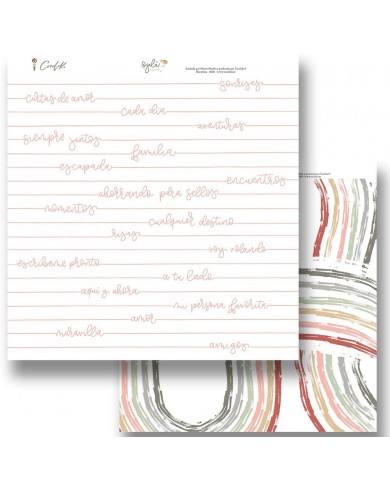 sonrisas
cartas de amor
cada dia
aventuras
siempre juntos
familia
escapada
encuentros
ahorrando para sellos
momentos
cualquier destino
risas
voy volando
escribeme pronto
a tu lado
aqui y ahora
mi persona favorita
amor
maravilla
amigos